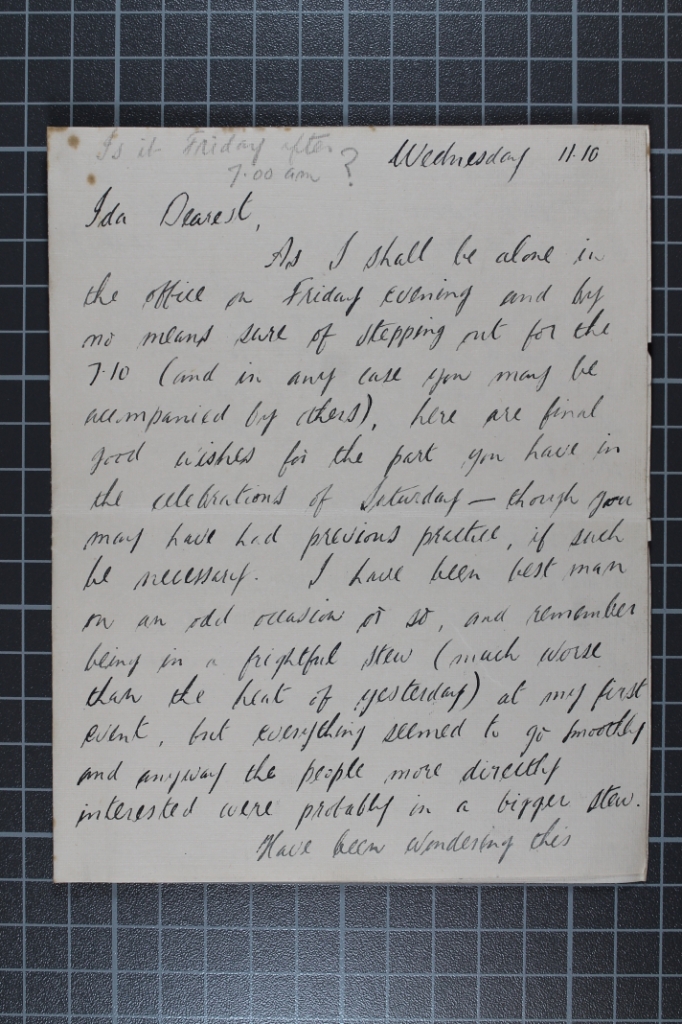 Is it Friday after
7.00 am ?
Wednesday 11.10
Ida Dearest,
As I shall be alone in
the office on Friday evening and by
no means sure of stepping out for the
7.10 (and in any case you may be
accompanied by others), here are final
good wishes for the part you have in
the celebrations of Saturday — though you
may have had previous practice, if such
be necessary. I have been best man
on an odd occasion or so, and remember
being in a frightful stew (much worse
than the heat of yesterday) at my first
event, but everything seemed to go smoothly
and anyway the people more directly
interested were probably in a bigger stew.
Have been wondering this